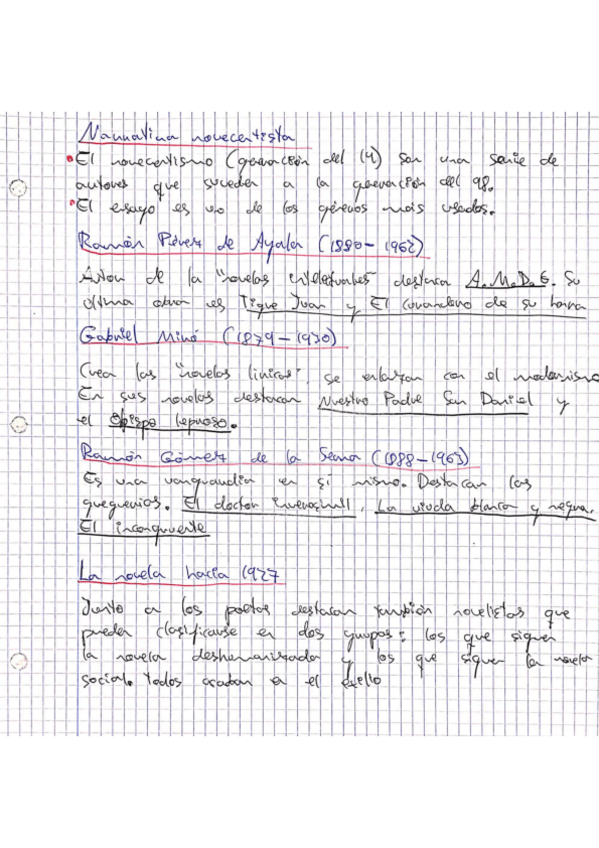 Narrativa novecentista
• El novecentismo (generación del 14) son una serie de
autores que suceden a la generación del 98.
• El ensayo es uno de los géneros más usados.
Ramón Pérez de Ayala (1880-1962)
Autor de la "novelas intelectuales" destaca A.M.D.G. Su
última obra es Tigre Juan y El curandero de su honra
Gabriel Miró (1879-1930)
Crea las "novelas líricas", se enlazan con el modernismo
En sus novelas destacan Nuestro Padre San Daniel y
el obispo leproso.
Ramón Gómez de la Serna (1888-1963)
Es una vanguardia en sí mismo. Destacan las
greguerías. El doctor inverosímil, La viuda blanca y negra,
El incongruente
La novela hacia 1927
Junto a los poetas destacan también novelistas que
pueden clasificarse en dos grupos: los que siguen
la novela deshumanizada y los que siguen la novela
social. Todos acaban en el exilio